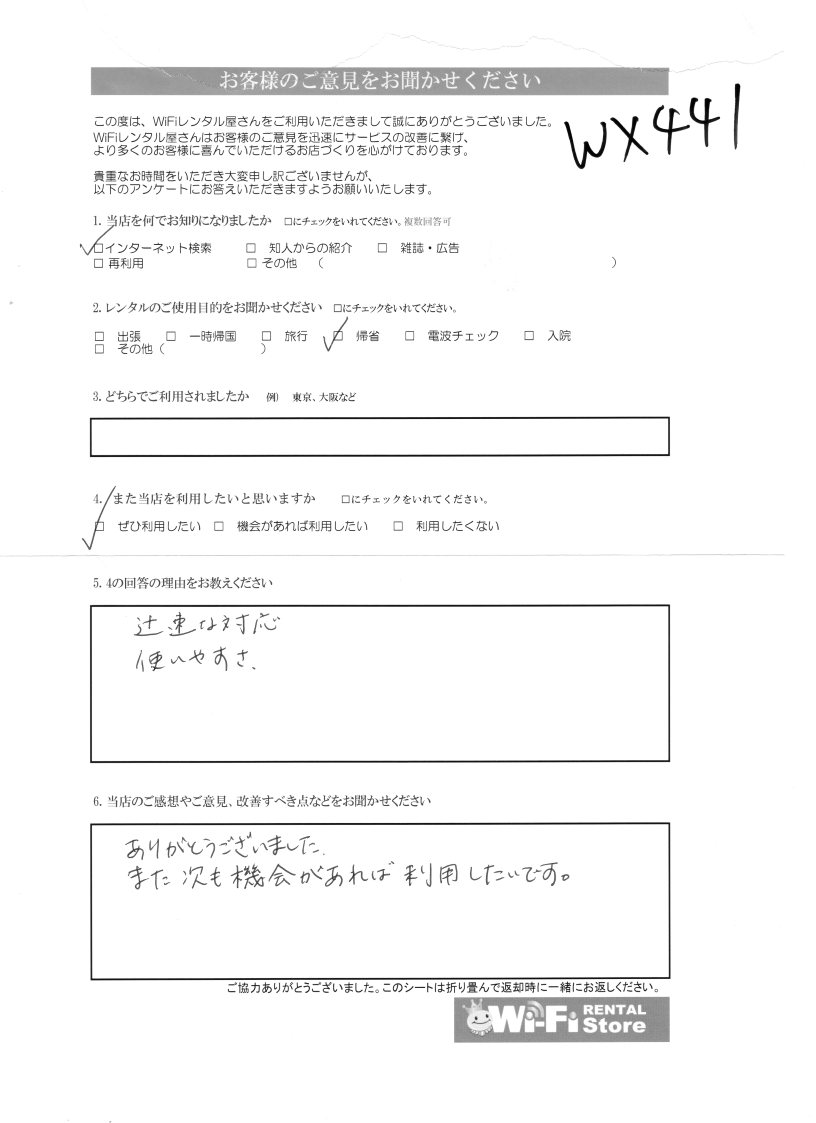 お客様のご意見をお聞かせください
WX441
この度は、WiFiレンタル屋さんをご利用いただきまして誠にありがとうございました。
WiFiレンタル屋さんはお客様のご意見を迅速にサービスの改善に繋げ、
より多くのお客様に喜んでいただけるお店づくりを心がけております。
貴重なお時間をいただき大変申し訳ございませんが、
以下のアンケートにお答えいただきますようお願いいたします。
1. 当店を何でお知りになりましたか □にチェックをいれてください。複数回答可
□インターネット検索 □ 知人からの紹介 □ 雑誌・広告
□ 再利用 □ その他 ( )
2. レンタルのご使用目的をお聞かせください □にチェックをいれてください。
□ 出張 □ 一時帰国 □ 旅行 □ 帰省 □ 電波チェック □ 入院
□ その他 ( )
3. どちらでご利用されましたか 例) 東京、大阪など
4. また当店を利用したいと思いますか □にチェックをいれてください。
□ ぜひ利用したい □ 機会があれば利用したい □ 利用したくない
5. 4の回答の理由をお教えください
迅速な対応
使いやすさ、
6. 当店のご感想やご意見、改善すべき点などをお聞かせください
ありがとうございました.
また次も機会があれば利用したいです。
ご協力ありがとうございました。このシートは折り畳んで返却時に一緒にお返しください。
Wi-Fi RENTAL Store